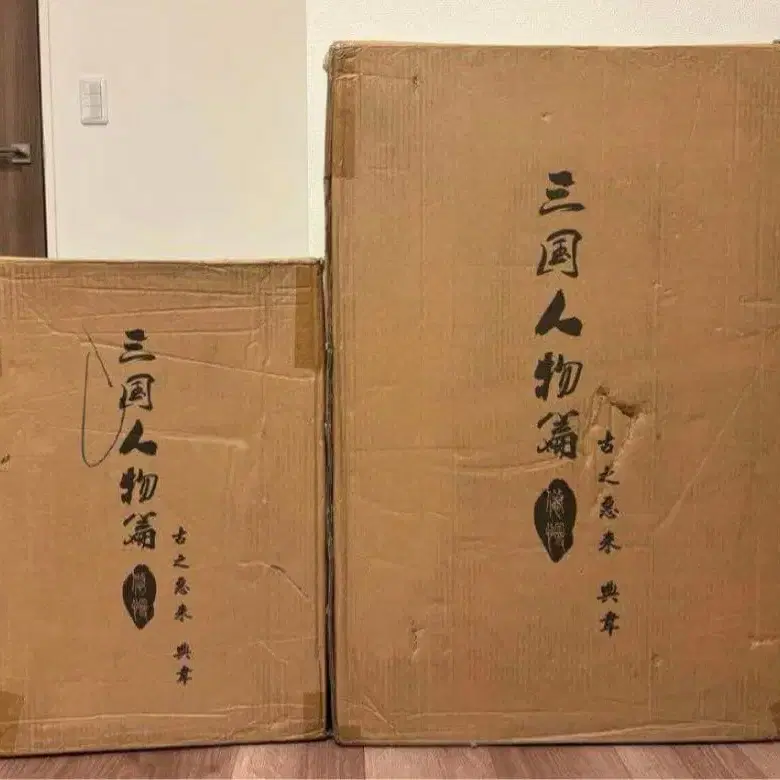 三国人物篇
古之恶来 典韦
三国人物篇
古之恶来 典韦